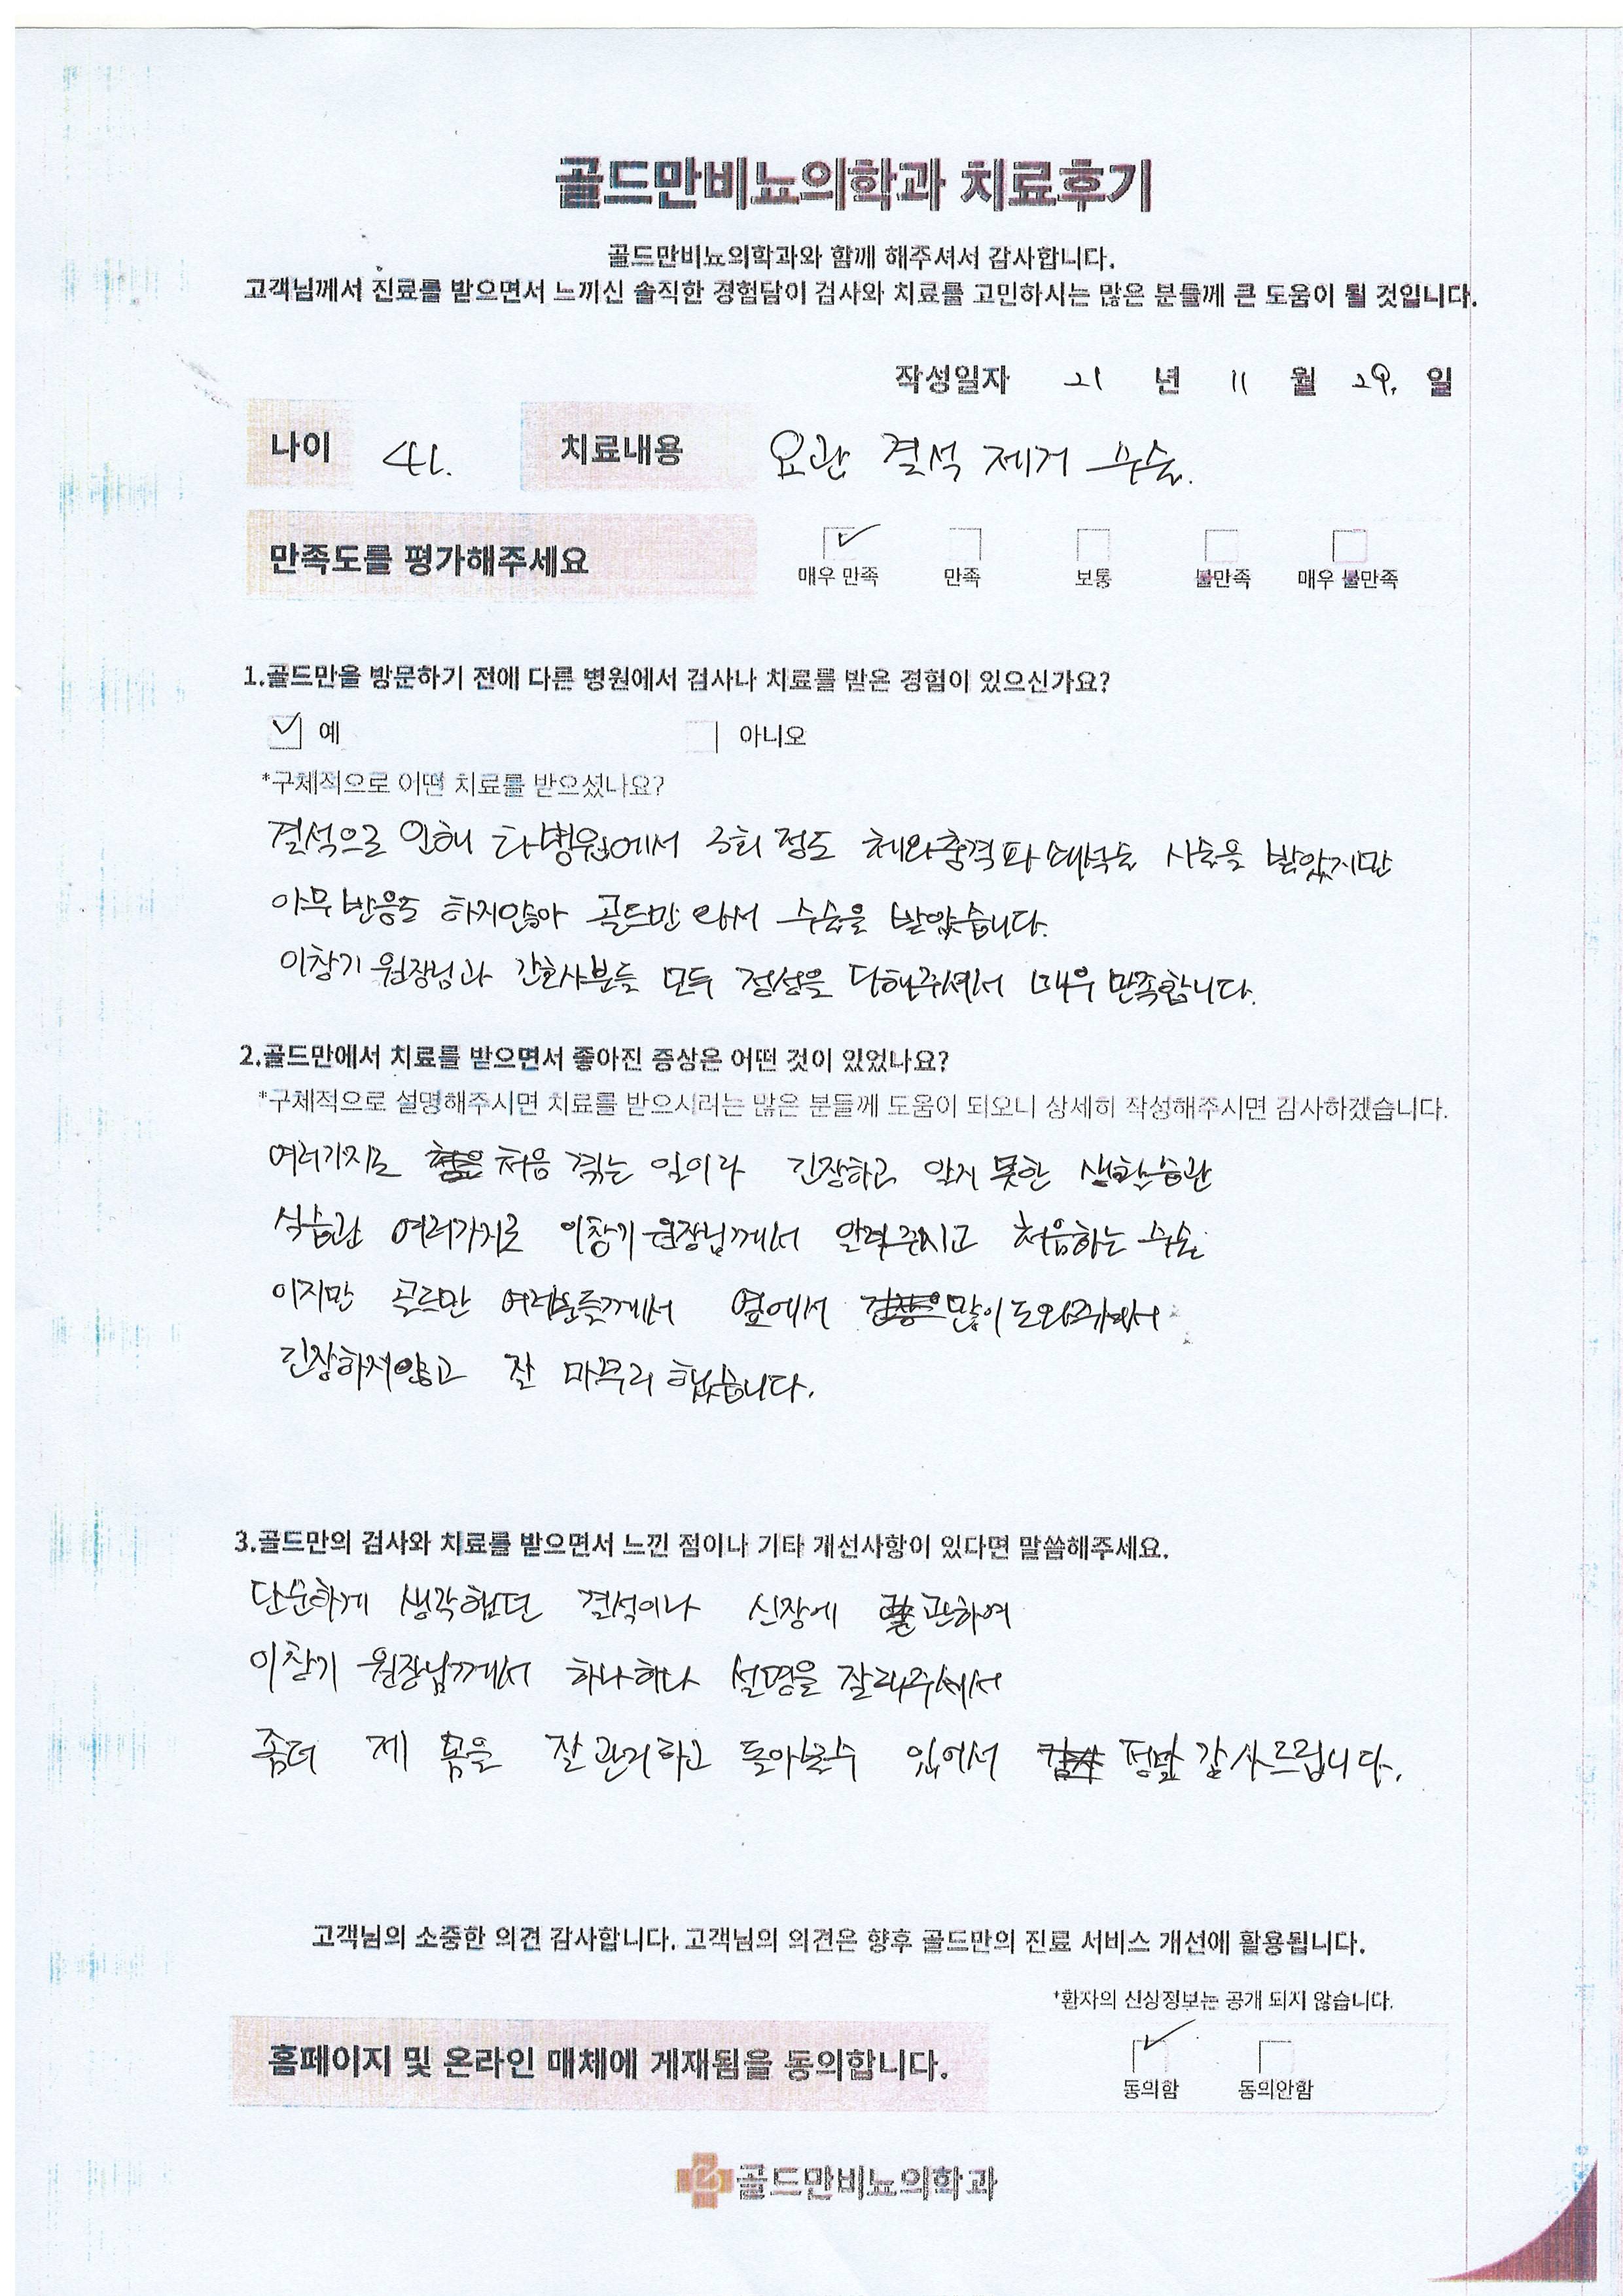 골드만비뇨의학과 치료후기
골드만비뇨의학과와 함께 해주셔서 감사합니다.
고객님께서 진료를 받으면서 느끼신 솔직한 경험담이 검사와 치료를 고민하시는 많은 분들께 큰 도움이 될 것입니다.
작성일자 21 년 11 월 29. 일
나이 41. 치료내용 요관 결석 제거 수술.
만족도를 평가해주세요
매우 만족 만족 보통 불만족 매우 불만족
1.골드만을 방문하기 전에 다른 병원에서 검사나 치료를 받은 경험이 있으신가요?
예 아니오
*구체적으로 어떤 치료를 받으셨나요?
결석으로 인해 타병원에서 3회 정도 체외충격파쇄석술 시술을 받았지만
아무반응도 하지않아 골드만 와서 수술을 받았습니다.
이창기 원장님과 간호사분들 모두 정성을 다해주셔서 매우 만족합니다.
2.골드만에서 치료를 받으면서 좋아진 증상은 어떤 것이 있었나요?
*구체적으로 설명해주시면 치료를 받으시려는 많은 분들께 도움이 되오니 상세히 작성해주시면 감사하겠습니다.
여러가지로 처음 겪는 일이라 긴장하고 알지 못한 생활습관
식습관 여러가지로 이창기 원장님께서 알려주시고 처음하는 수술
이지만 골드만 여러분들께서 옆에서 많이 도와주셔서
긴장하지않고 잘 마무리 했습니다.
3.골드만의 검사와 치료를 받으면서 느낀 점이나 기타 개선사항이 있다면 말씀해주세요.
단순하게 생각했던 결석이나 신장에 관하여
이창기 원장님께서 하나하나 설명을 잘해주셔서
좀더 제 몸을 잘관리하고 돌아볼수 있어서 정말 감사드립니다.
고객님의 소중한 의견 감사합니다. 고객님의 의견은 향후 골드만의 진료 서비스 개선에 활용됩니다.
*환자의 신상정보는 공개 되지 않습니다.
홈페이지 및 온라인 매체에 게재됨을 동의합니다.
동의함 동의안함
골드만비뇨의학과